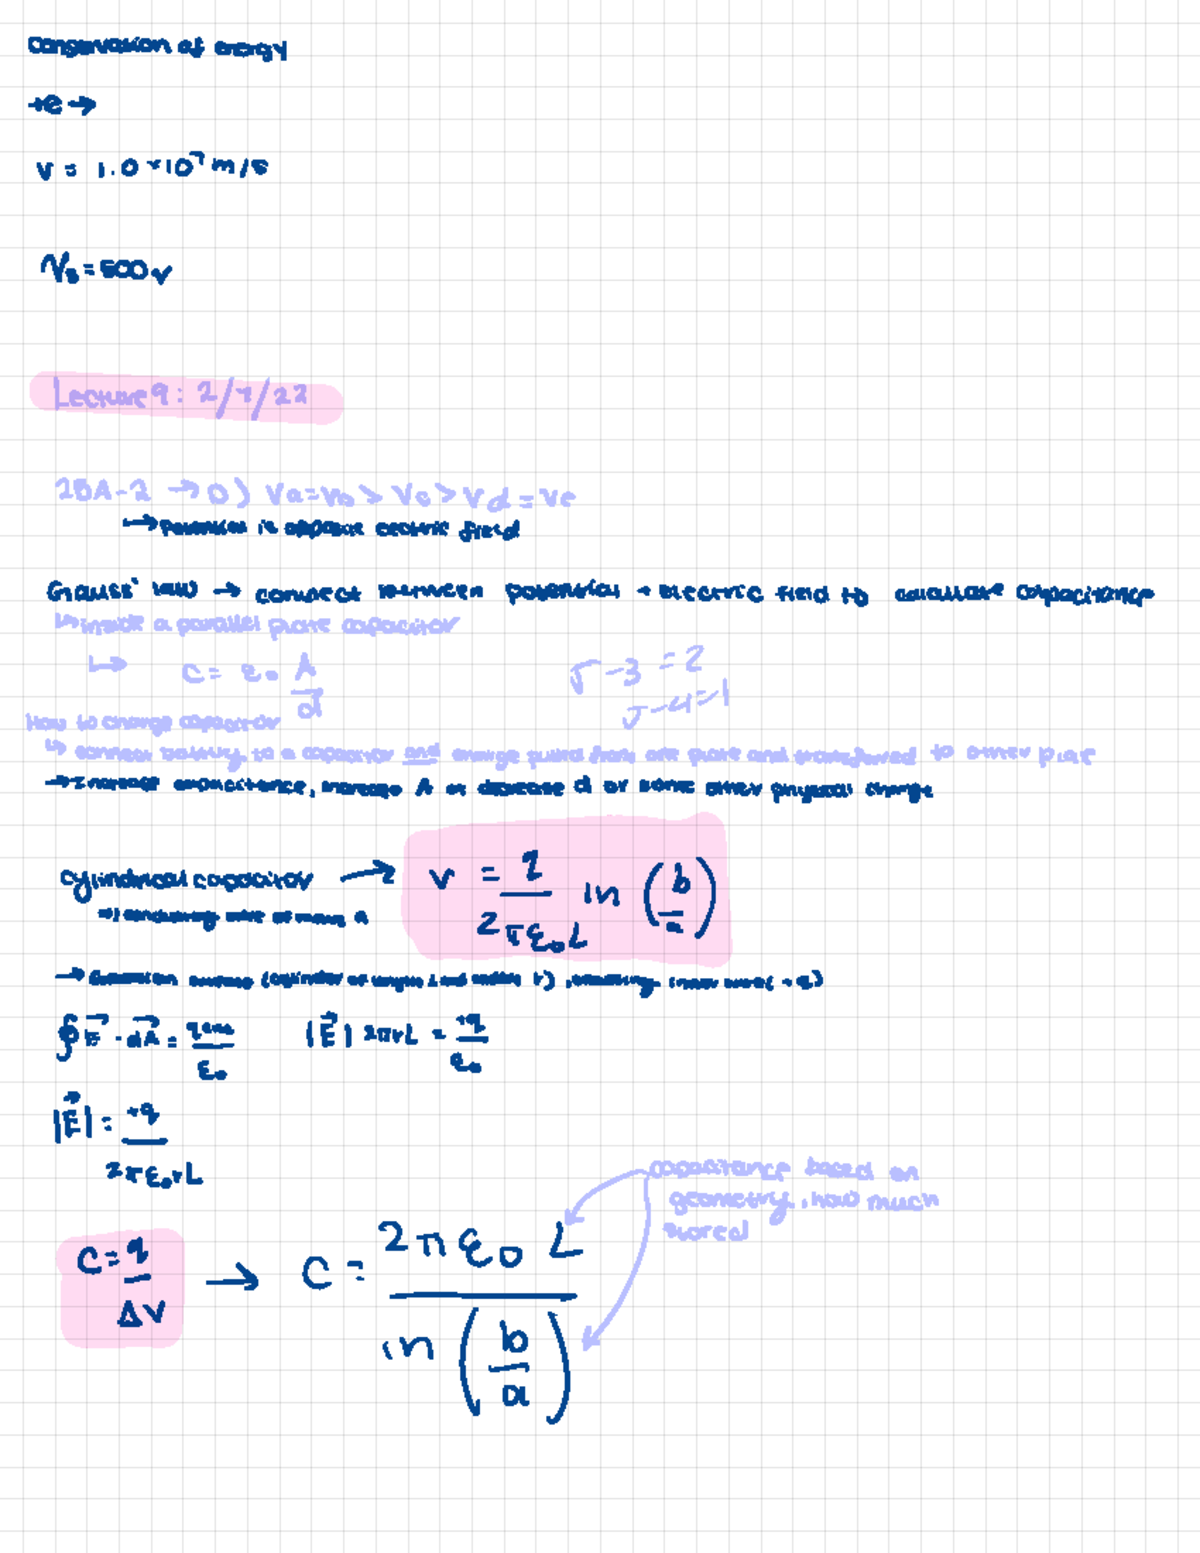 conservation of energy
+e →
v = 1.0 × 10⁷ m/s
V₈ = 500 v
Lecture 9: 2/7/22
25A-2 → D) Va = Vb > Vc > Vd = Ve
→ Potential is opposite electric field
Gauss' law → connect between potential + electric field to calculate capacitance
↳ inside a parallel plate capacitor
↳ C = ε₀ A/d
5 - 3 = 2
5 - 4 = 1
How to charge capacitor
↳ connect battery to a capacitor and charge pulled from one plate and transferred to other plate
→ Increase capacitance, increase A or decrease d or some other physical change
cylindrical capacitor → V = q / 2πε₀L ln (b/a)
→ conducting wire of radius a
→ Gaussian surface (cylinder of length L and radius r), enclosing inner wire (+q)
∮ E⃗ · dA⃗ = qenc / ε₀
|E⃗| 2πrL = +q / ε₀
|E⃗| = +q / 2πε₀rL
capacitance based on
geometry, how much
stored
C = q / ΔV → C = 2πε₀L / ln (b/a)